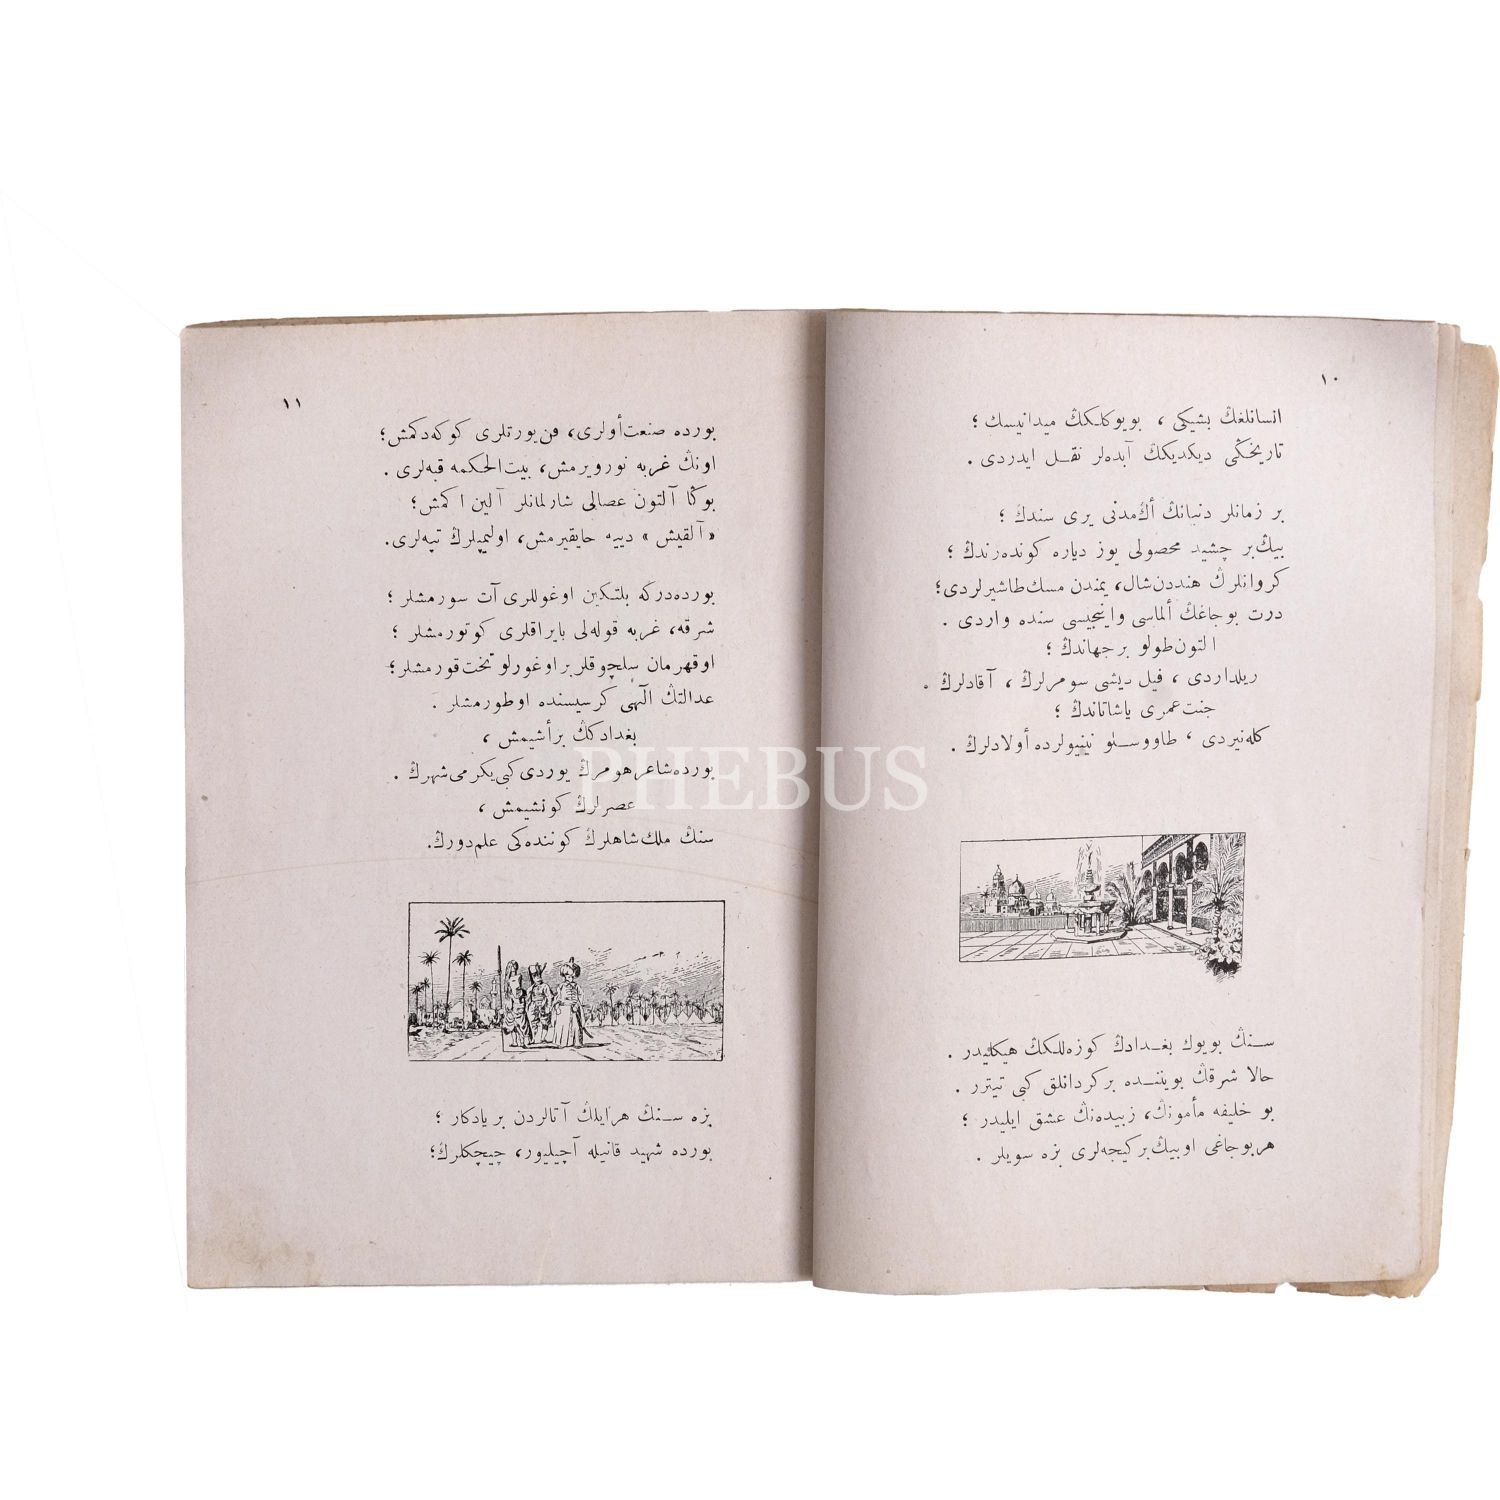 ١٠
انسانلغڭ بشیکی ، بویوکلکڭ میدانیسڭ ؛
تاریخڭی دیکدیکڭ آبده‌لر نقـل ایدردی .
بر زمانلر دنیانڭ أڭ مدنی یری سندڭ ؛
بیڭ بر چشید محصولی یوز دیاره کونده‌رندڭ ؛
کروانلرڭ هنددن شال، یمندن مسك طاشیرلردی ؛
درت بوجاغڭ ألماسی واینجیسی سنده واردی .
التون طولو بر جهاندڭ ؛
ریلداردی ، فیل دیشی سومرلرڭ ، آقادلرڭ .
جنت عمری یاشاتاندڭ ؛
کله‌نیردی ، طاووسـلو نینیولرده أولادلرڭ .
سـنڭ بویوك بغـدادڭ کوزه‌للکڭ هیکلیدر .
حالا شرقڭ بویننـده بر کردانلق کبی تیترر .
بو خلیفه مأمونڭ، زبیده‌نڭ عشق ایلیدر ؛
هر بوجاغی او بیڭ بر کیجه‌لری بزه سویلر .
١١
بورده صنعت أولری، فن یورتلری کوکه دکمش ؛
اونڭ غربه نور ویرمش، بیت الحکمه قبه‌لری .
بوڭا آلتون عصالی شارلمانلر آلین اکمش ؛
« آلقیش » دییه حایقیرمش، اولیمپلرڭ تپه‌لری.
بورده‌درکه بلتکین اوغوللری آت سورمشلر ؛
شرقه، غربه قوله‌لی بایراقلری کوتورمشلر ؛
او قهرمان سلچوقلر بر اوغورلو تخت قورمشلر ؛
عدالتڭ آلهی کرسیسنده اوطورمشلر .
بغدادکڭ بر أشیمش ،
بورده شاعر هومرڭ یوردی کبی یکرمی شهرڭ .
عصرلرڭ کونشیمش ،
سنڭ ملك شاهلرڭ کوننده‌کی علم دورڭ.
بزه سـنڭ هر ایلڭ آتالردن بر یادکار ؛
بورده شهید قانیله آچیلیور، چیچکلرڭ ؛
PHEBUS